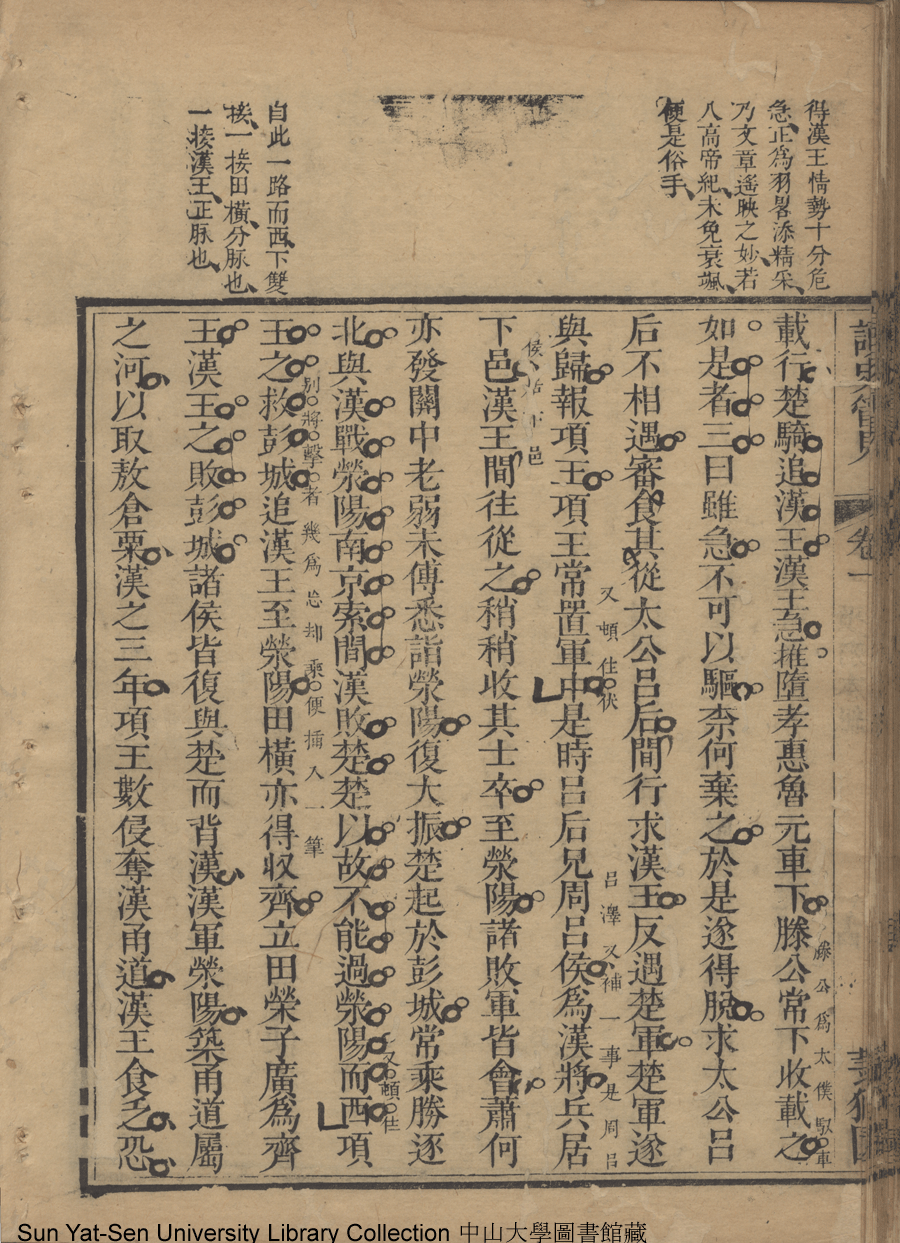 得漢王情勢十分危
急、正爲羽畧添精采、
乃文章遙映之妙、若
入高帝紀、未免衰颯、
便是俗手、
自此一路而西、下雙
接、一接田橫、分脉也、
一接漢王、正脉也、
卷一
載行楚騎追漢王漢王急推墮孝惠魯元車下滕公常下收載之
滕公爲太僕馭車
如是者三曰雖急不可以驅柰何棄之於是遂得脫求太公呂
后不相遇審食其從太公呂后間行求漢王反遇楚軍楚軍遂
又頓住伏
呂澤又補一事是周呂
與歸報項王項王常置軍中是時呂后兄周呂侯爲漢將兵居
侯
下邑
下邑漢王間往從之稍稍收其士卒至滎陽諸敗軍皆會蕭何
亦發關中老弱未傅悉詣滎陽復大振楚起於彭城常乘勝逐
北與漢戰滎陽南京索間漢敗楚楚以故不能過滎陽而西項
又頓住
王之救彭城追漢王至滎陽田橫亦得収齊立田榮子廣爲齊
別將擊者幾爲忘却乘便插入一筆
王漢王之敗彭城諸侯皆復與楚而背漢漢軍滎陽築甬道屬
之河以取敖倉粟漢之三年項王數侵奪漢甬道漢王食乏恐
Sun Yat-Sen University Library Collection 中山大學圖書館藏